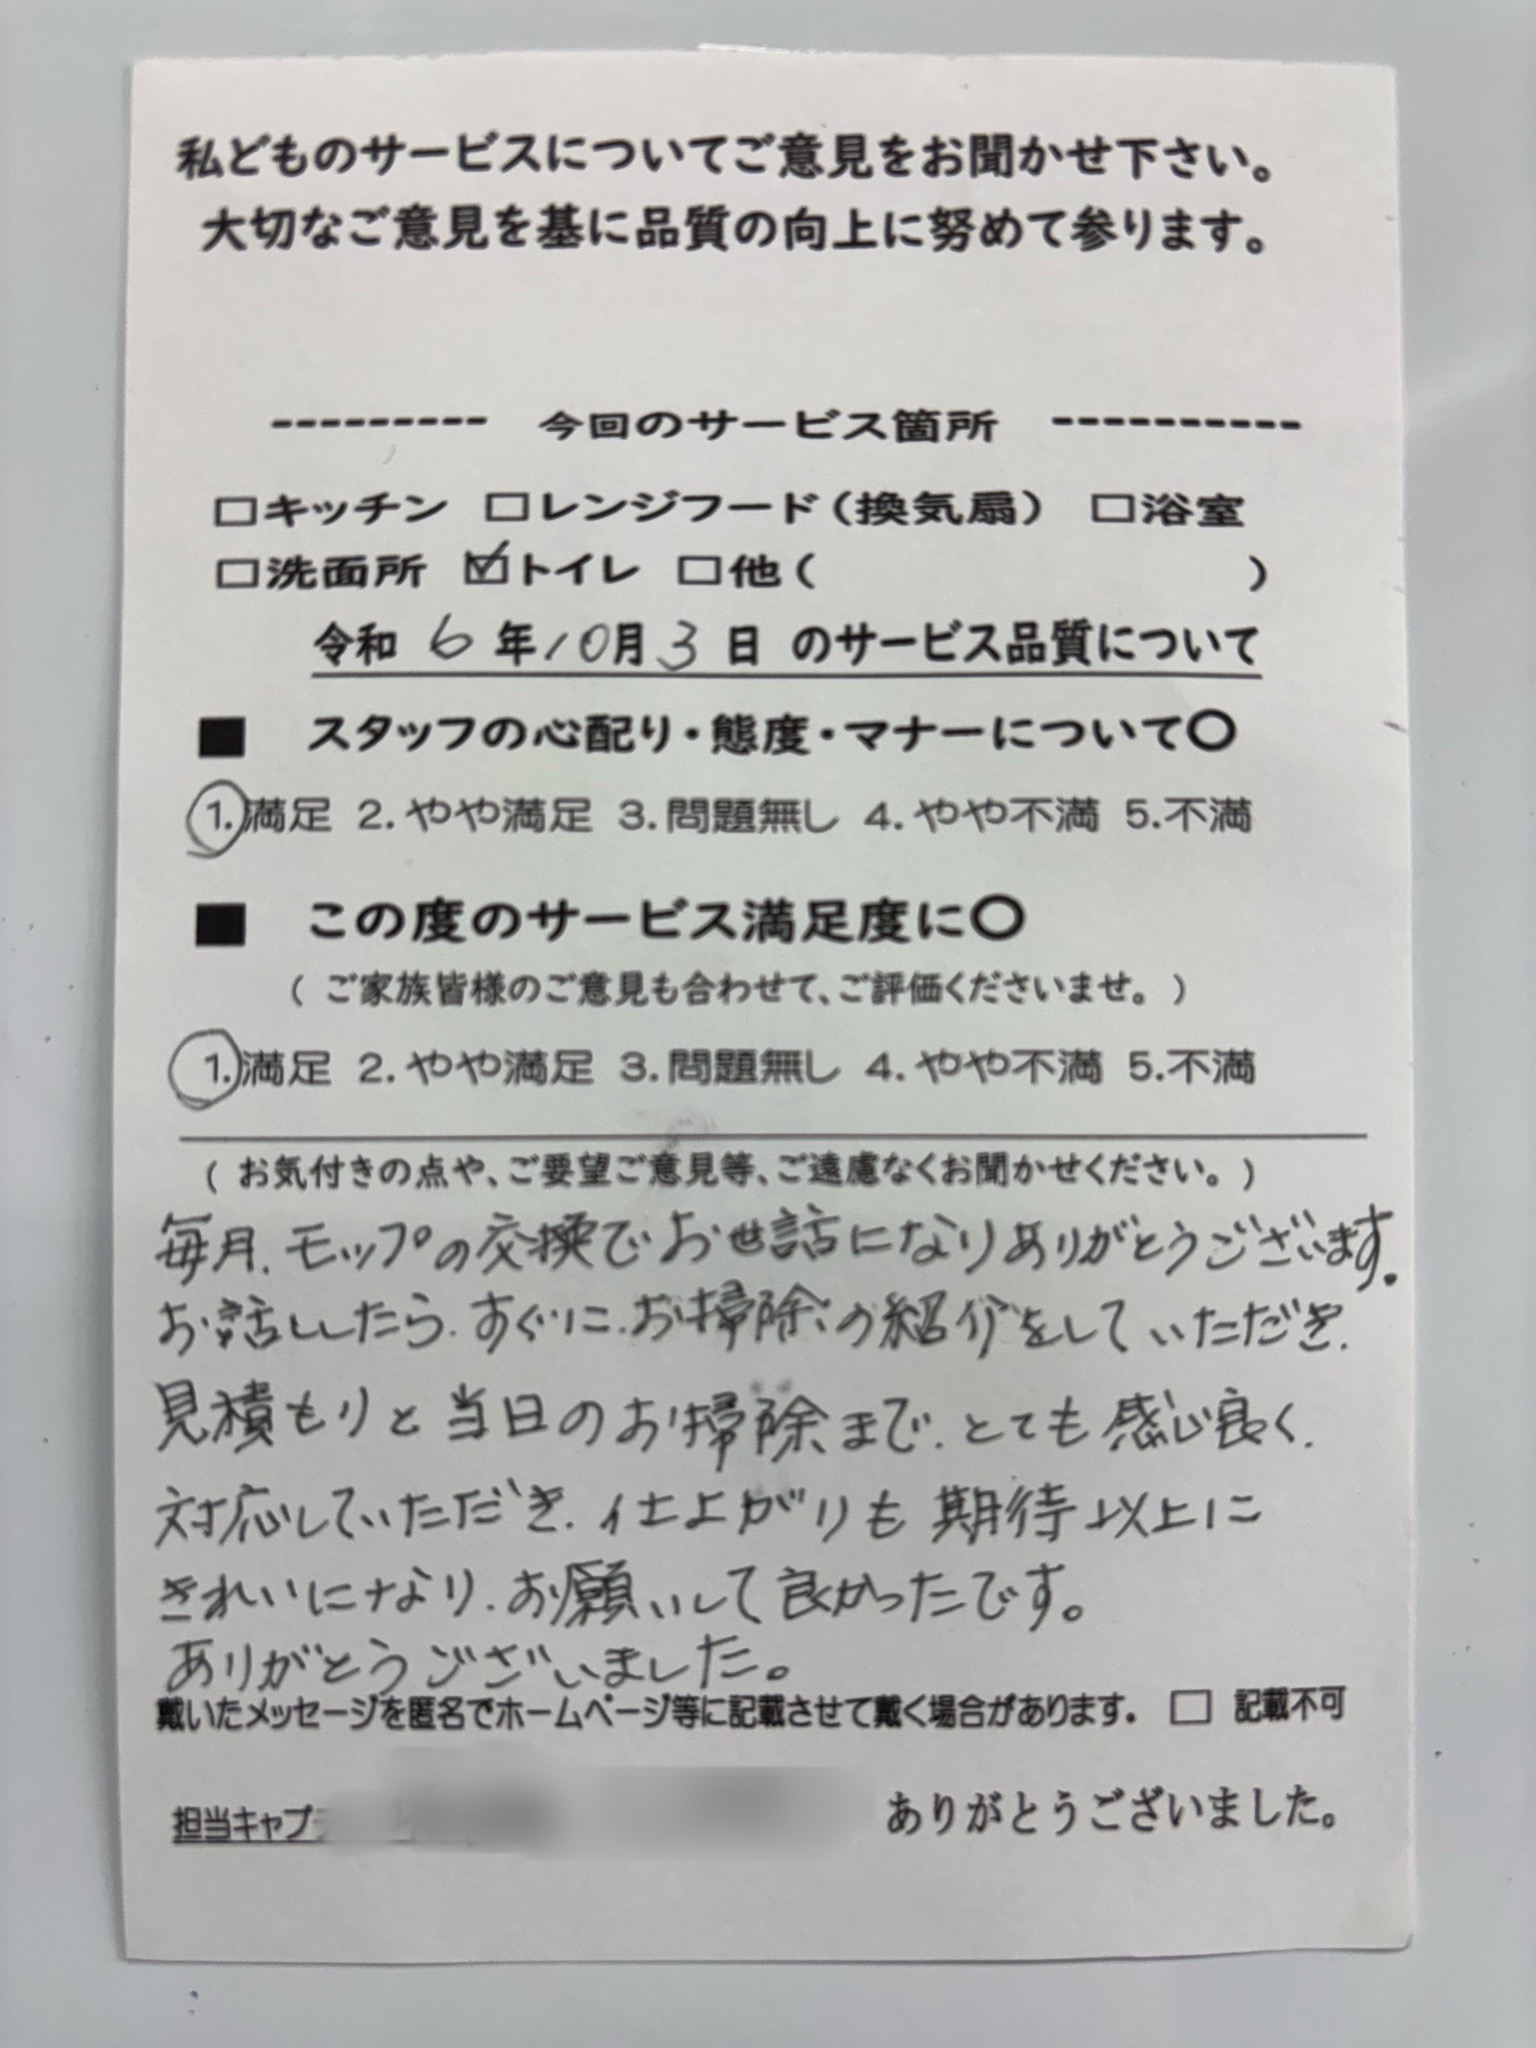 私どものサービスについてご意見をお聞かせ下さい。
大切なご意見を基に品質の向上に努めて参ります。
--------- 今回のサービス箇所 ----------
□キッチン □レンジフード(換気扇) □浴室
□洗面所 ☑トイレ □他( )
令和 6 年 10月 3 日 のサービス品質について
■ スタッフの心配り・態度・マナーについて〇
1.満足 2.やや満足 3.問題無し 4.やや不満 5.不満
■ この度のサービス満足度に〇
( ご家族皆様のご意見も合わせて、ご評価くださいませ。 )
1.満足 2.やや満足 3.問題無し 4.やや不満 5.不満
( お気付きの点や、ご要望ご意見等、ご遠慮なくお聞かせください。 )
毎月、モップの交換でお世話になりありがとうございます。
お話ししたら、すぐに、お掃除の紹介をしていただき、
見積もりと当日のお掃除まで、とても感じ良く、
対応していただき、仕上がりも期待以上に
きれいになり、お願いして良かったです。
ありがとうございました。
戴いたメッセージを匿名でホームページ等に記載させて戴く場合があります。 □ 記載不可
担当キャプ ありがとうございました。